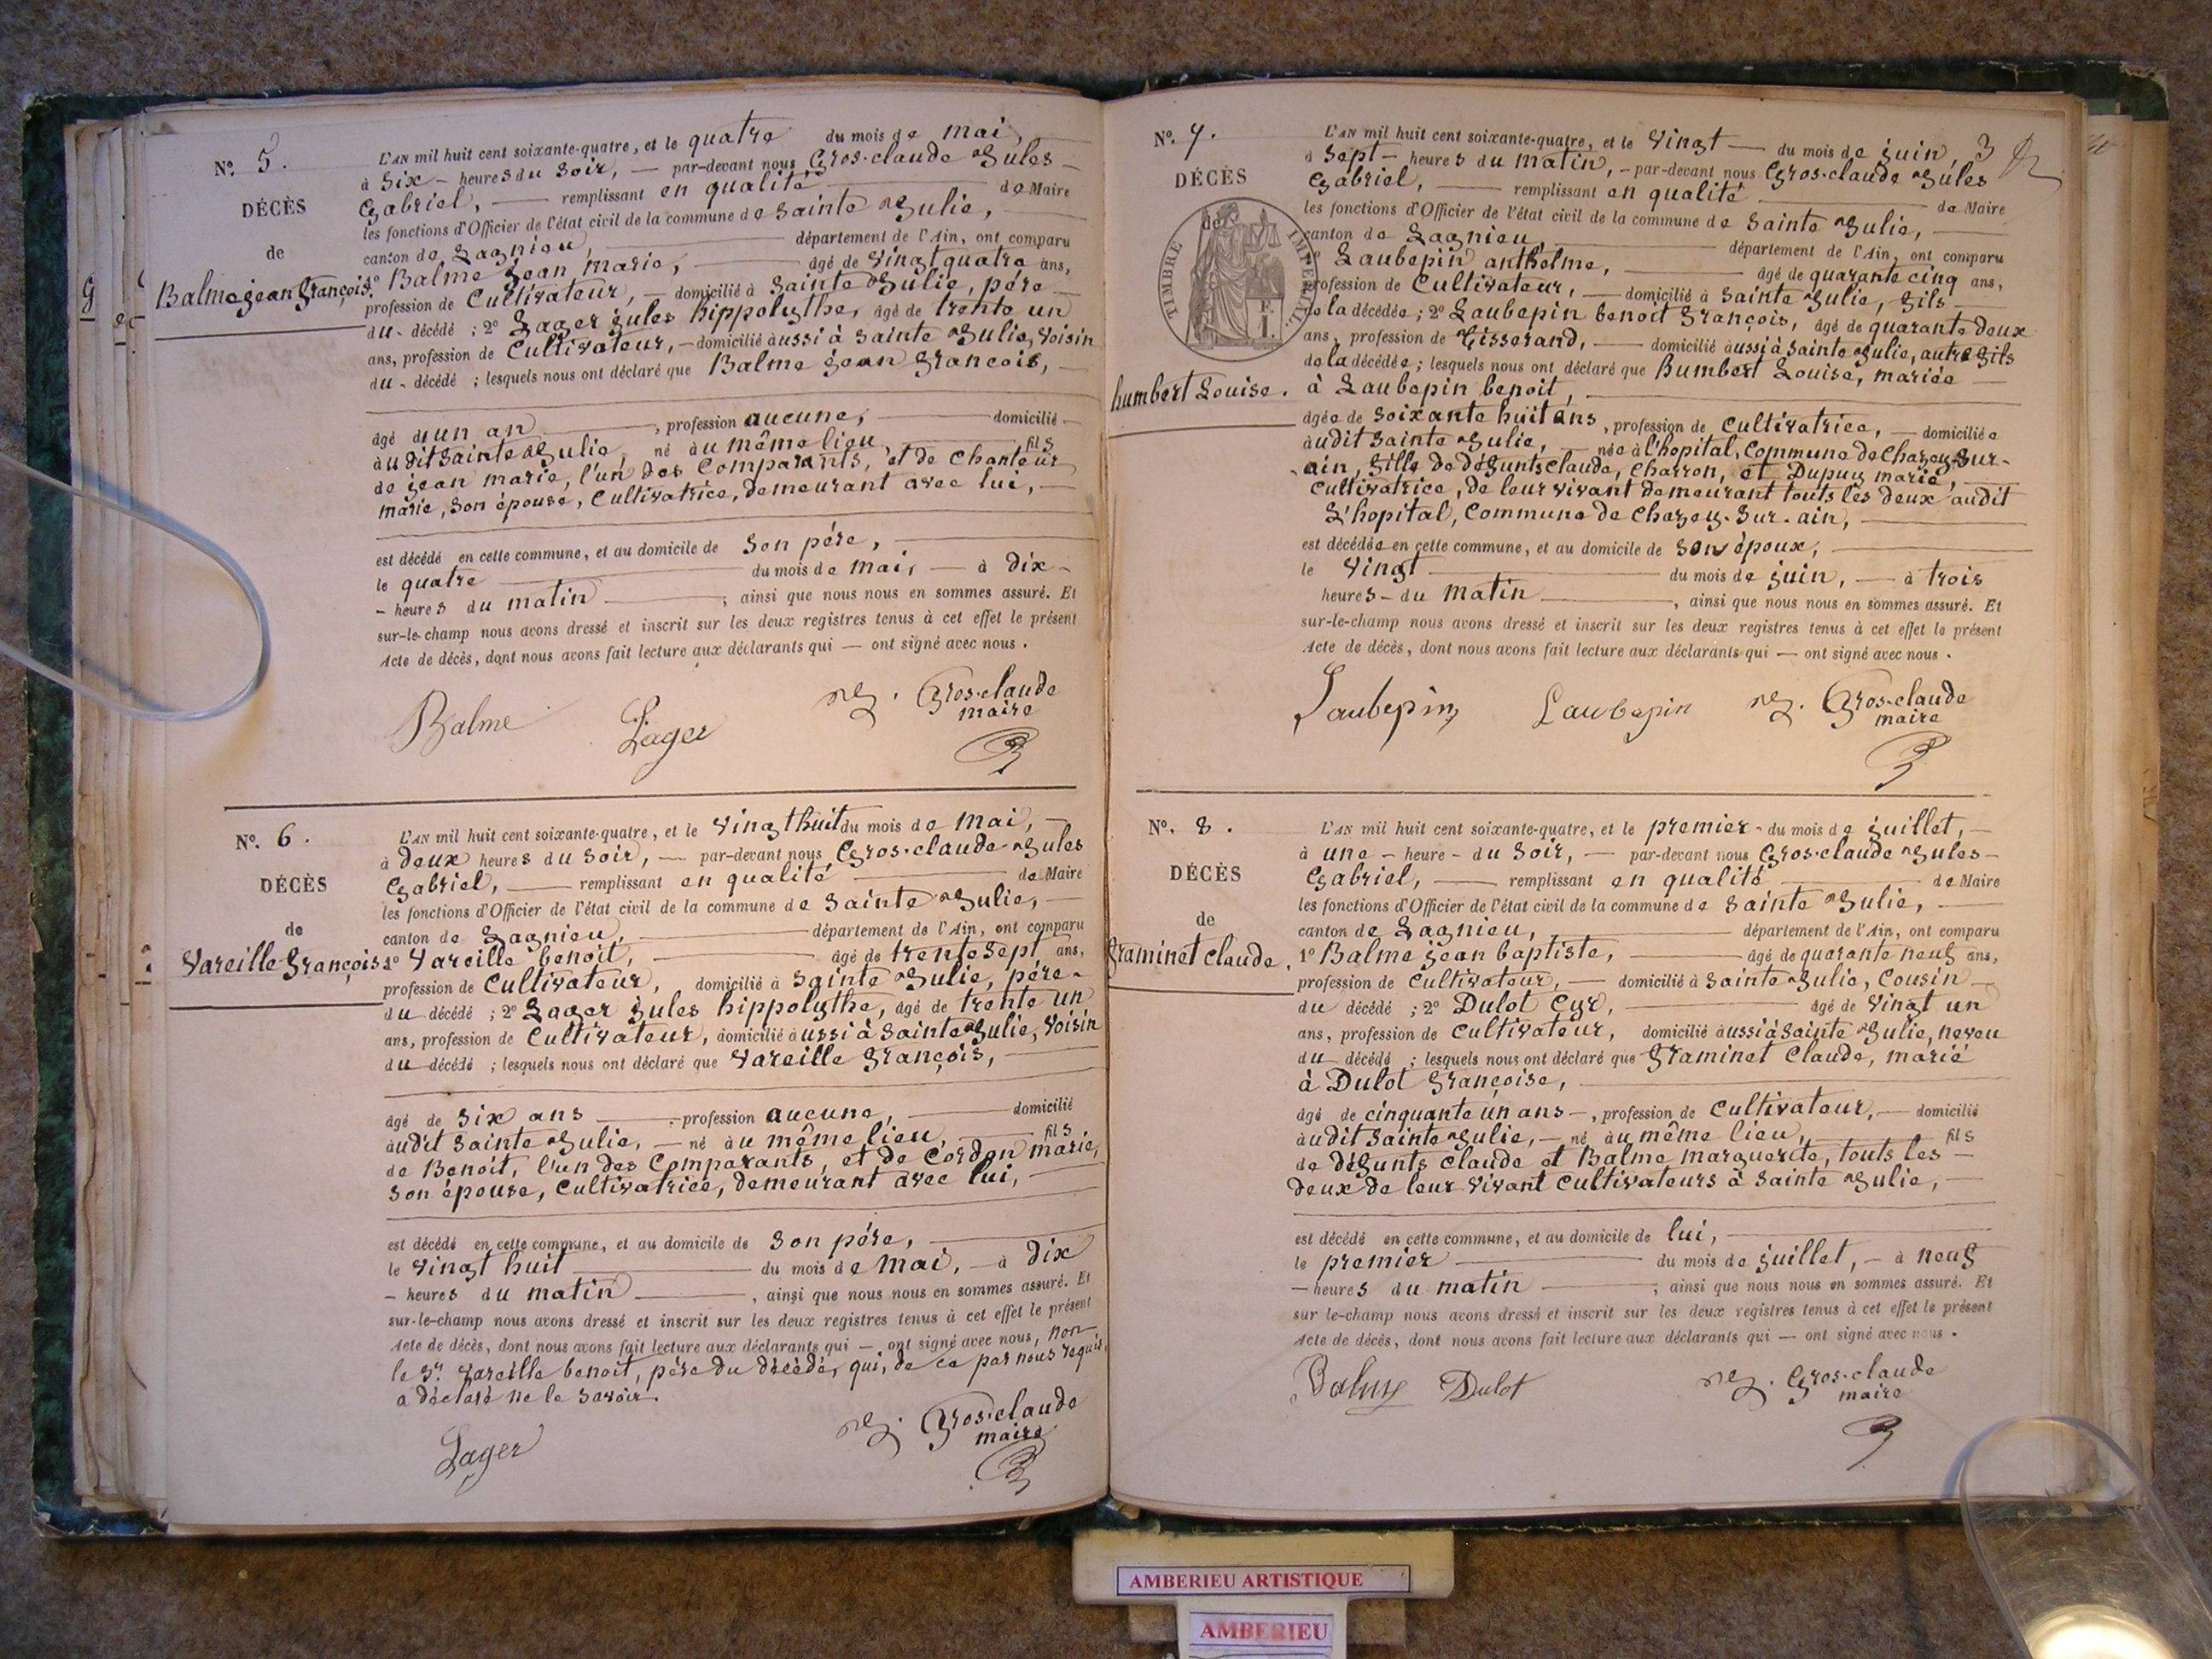 N.° 5.
DÉCÈS
de
Balme jean françois.
L'AN mil huit cent soixante-quatre, et le quatre du mois de mai,
à six heures du soir, par-devant nous Gros-claude Jules
Gabriel, remplissant en qualité de Maire
les fonctions d'Officier de l'état civil de la commune de Sainte Julie,
canton de Lagnieu, département de l'Ain, ont comparu
1° Balme jean marie, âgé de vingt quatre ans,
profession de Cultivateur, domicilié à Sainte Julie, père
du décédé ; 2° Lager jules hippolythe, âgé de trente un
ans, profession de Cultivateur, domicilié aussi à Sainte Julie, voisin
du décédé ; lesquels nous ont déclaré que Balme jean françois,
âgé d'un an, profession aucune, domicilié
audit Sainte Julie, né au même lieu, fils
de jean marie, l'un des comparants, et de Chanteur
marie, son épouse, cultivatrice, demeurant avec lui,
est décédé en cette commune, et au domicile de son père,
le quatre du mois de mai, à dix
heures du matin ; ainsi que nous nous en sommes assuré. Et
sur-le-champ nous avons dressé et inscrit sur les deux registres tenus à cet effet le présent
Acte de décès, dont nous avons fait lecture aux déclarants qui ont signé avec nous.
Balme Lager Gros-claude
maire
N.° 6.
DÉCÈS
de
Vareille françois
L'AN mil huit cent soixante-quatre, et le vingt huit du mois de mai,
à deux heures du soir, par-devant nous Gros-claude Jules
Gabriel, remplissant en qualité de Maire
les fonctions d'Officier de l'état civil de la commune de Sainte Julie,
canton de Lagnieu, département de l'Ain, ont comparu
1° Vareille benoit, âgé de trente sept ans,
profession de Cultivateur, domicilié à Sainte Julie, père
du décédé ; 2° Lager jules hippolythe, âgé de trente un
ans, profession de Cultivateur, domicilié aussi à Sainte Julie, voisin
du décédé ; lesquels nous ont déclaré que Vareille françois,
âgé de six ans profession aucune, domicilié
audit Sainte Julie, né au même lieu, fils
de Benoit, l'un des comparants, et de Cordon marie,
son épouse, cultivatrice, demeurant avec lui,
est décédé en cette commune, et au domicile de son père,
le vingt huit du mois de mai, à dix
heures du matin, ainsi que nous nous en sommes assuré. Et
sur-le-champ nous avons dressé et inscrit sur les deux registres tenus à cet effet le présent
Acte de décès, dont nous avons fait lecture aux déclarants qui ont signé avec nous, non
le Sr. Vareille benoit, père du décédé, qui, de ce par nous requis,
a déclaré ne le savoir.
Lager Gros-claude
maire
N.° 7.
DÉCÈS
de
TIMBRE IMPERIAL
humbert Louise.
3
L'AN mil huit cent soixante-quatre, et le vingt du mois de juin,
à sept heures du matin, par-devant nous Gros-claude Jules
Gabriel, remplissant en qualité de Maire
les fonctions d'Officier de l'état civil de la commune de Sainte Julie,
canton de Lagnieu, département de l'Ain, ont comparu
Laubepin anthelme, âgé de quarante cinq ans,
profession de Cultivateur, domicilié à Sainte Julie, fils
de la décédée ; 2° Laubepin benoit françois, âgé de quarante deux
ans, profession de Tisserand, domicilié aussi à Sainte Julie, autre fils
de la décédée ; lesquels nous ont déclaré que humbert Louise, mariée
à Laubepin benoit,
âgée de soixante huit ans, profession de cultivatrice, domiciliée
audit Sainte Julie, née à l'hopital, Commune de Chazey-sur-
ain, fille de défunts claude, charron, et Dupuy marie,
cultivatrice, de leur vivant demeurant touts les deux audit
L'hopital, Commune de Chazey-sur-ain,
est décédée en cette commune, et au domicile de son époux,
le vingt du mois de juin, à trois
heures du matin, ainsi que nous nous en sommes assuré. Et
sur-le-champ nous avons dressé et inscrit sur les deux registres tenus à cet effet le présent
Acte de décès, dont nous avons fait lecture aux déclarants qui ont signé avec nous.
Laubepin Laubepin Gros-claude
maire
N.° 8.
DÉCÈS
de
framinet claude.
L'AN mil huit cent soixante-quatre, et le premier du mois de juillet,
à une heure du soir, par-devant nous Gros-claude Jules
Gabriel, remplissant en qualité de Maire
les fonctions d'Officier de l'état civil de la commune de Sainte Julie,
canton de Lagnieu, département de l'Ain, ont comparu
1° Balme jean baptiste, âgé de quarante neuf ans,
profession de cultivateur, domicilié à Sainte Julie, cousin
du décédé ; 2° Dulot Cyr, âgé de vingt un
ans, profession de cultivateur, domicilié aussi à Sainte Julie, neveu
du décédé ; lesquels nous ont déclaré que framinet claude, marié
à Dulot françoise,
âgé de cinquante un ans, profession de Cultivateur, domicilié
audit Sainte Julie, né au même lieu, fils
de défunts claude et Balme marguerite, touts les
deux de leur vivant cultivateurs à Sainte Julie,
est décédé en cette commune, et au domicile de lui,
le premier du mois de juillet, à neuf
heures du matin ; ainsi que nous nous en sommes assuré. Et
sur le-champ nous avons dressé et inscrit sur les deux registres tenus à cet effet le présent
Acte de décès, dont nous avons fait lecture aux déclarants qui ont signé avec nous.
Balme Dulot Gros-claude
maire
AMBERIEU ARTISTIQUE
AMBERIEU